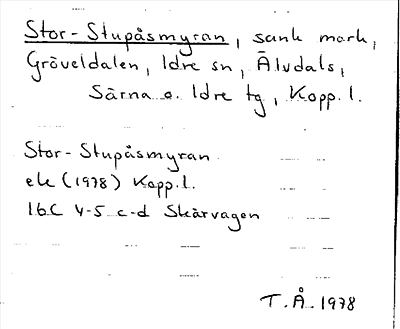 Stor-Stupåsmyran, sank mark,
Gröveldalen, Idre sn, Älvdals,
Särna o. Idre tg, Kopp. l.
Stor-Stupåsmyran
ek (1978) Kopp. l.
16C 4-5 c-d Skärvagen
T.Å. 1978